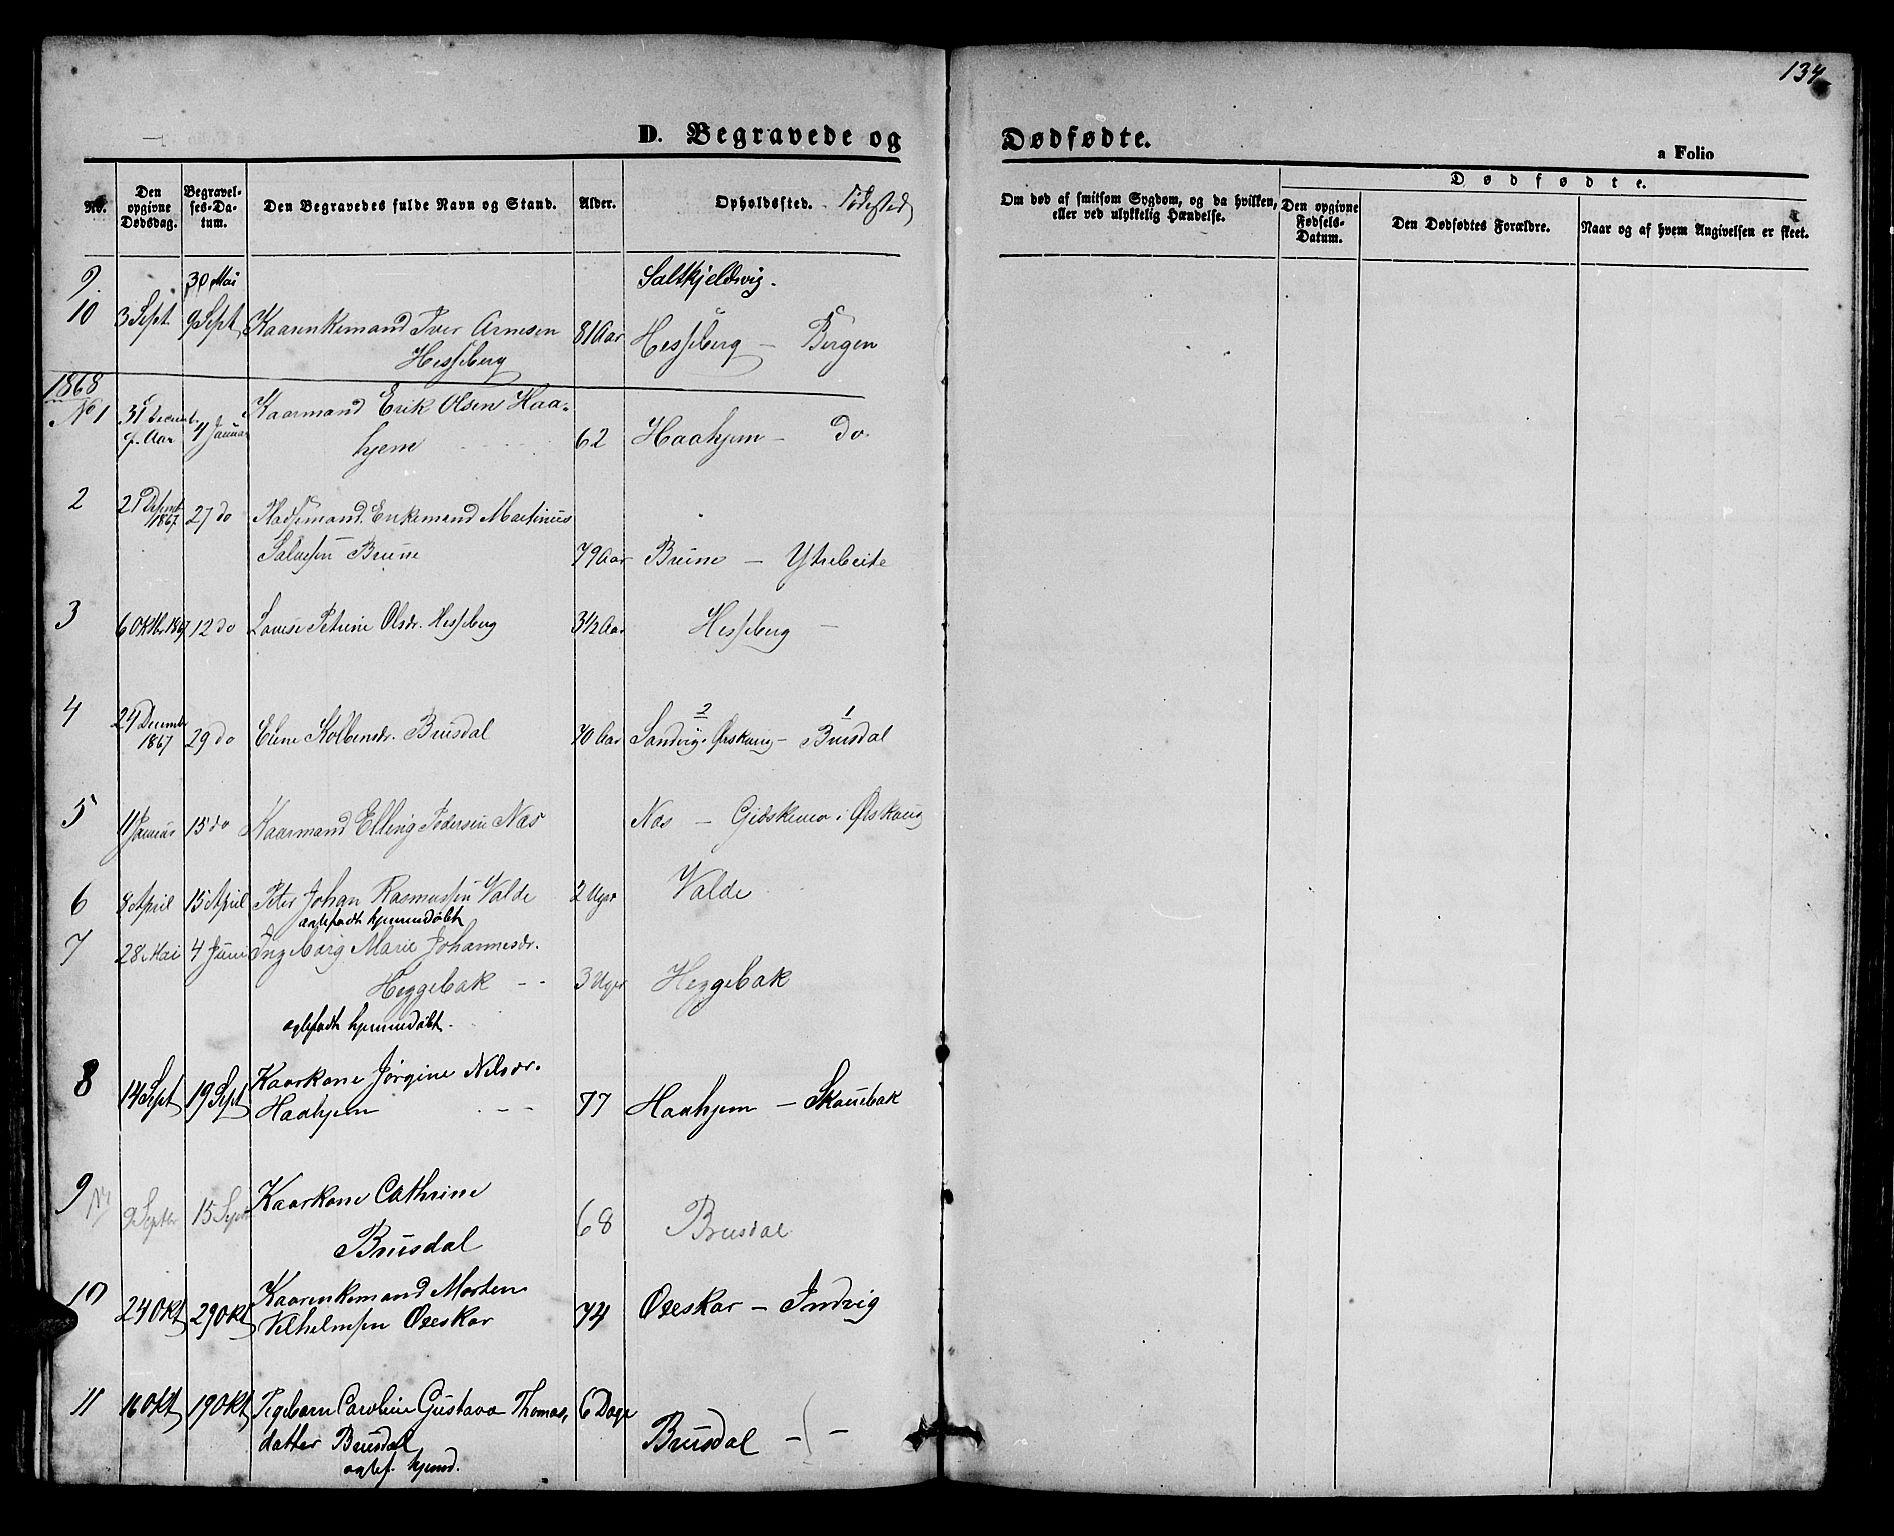 134
D. Begravede og Dødfødte.
a Folio
No. Den opgivne Dødsdag. Begravelses-Datum. Den Begravedes fulde Navn og Stand. Alder. Opholdssted. Fødested
Om død af smitsom Sygdom, og da hvilken, eller ved ulykkelig Hændelse.
Dødfødte.
Den opgivne Fødsels-Datum. Den Dødfødtes Forældre. Naar og af hvem Angivelsen er skeet.
9. 30 Mai Saltkjelsvig.
10 3 Sept 9 Sept Kaarenkemand Iver Arnesen 81 Aar Hesseberg — Bergen
Hesseberg
1868
No 1 31 Decemb. f. Aar 4 Januar Kaarmand Erik Olsen Haa-
hjem 62 Haahjem — do.
2 21 1867 27 do Enkemand Martinus
Salvesen Brune 79 Aar Brune — Ytrebeite
3 6 Oktbr 1867 12 do Lovise Petrine Olsdr. Hesseberg 3½ Aar Hesseberg —
4 29 Decembr 1867 29 do Elene Kolbensdr. Brusdal 70 Aar Sandvig i Ørskoug — Brusdal
2 1
5 11 Januar 15 do Kaarmand Elling Pedersen Næs Næs — i Ørskoug
6 8 April 15 April Peter Johan Rasmussen Valde 2 Uger Valde
ægtefødt hjemmedøbt
7 28 Mai 4 Juni Ingeborg Marie Johannesdr.
Heggebak -- 3 Uger Heggebak
ægtefødt hjemmedøbt.
8 14 Sept 19 Sept Kaarkone Jørgine Nilsdr.
Haahjem -- 77 Haahjem — Skouebak
9 9 Septbr 15 Sept Kaarkone Cathrine
Brusdal 68 Brusdal
10 24 Okt 29 Okt Kaarenkemand Morten
Vilhelmsen Øreskar 74 Øreskar — Indvig
11 16 Okt 19 Okt Pigebarn Caroline Gustava Thomas- 6 Dage
datter Brusdal Brusdal — —
ægtef. hjemd.